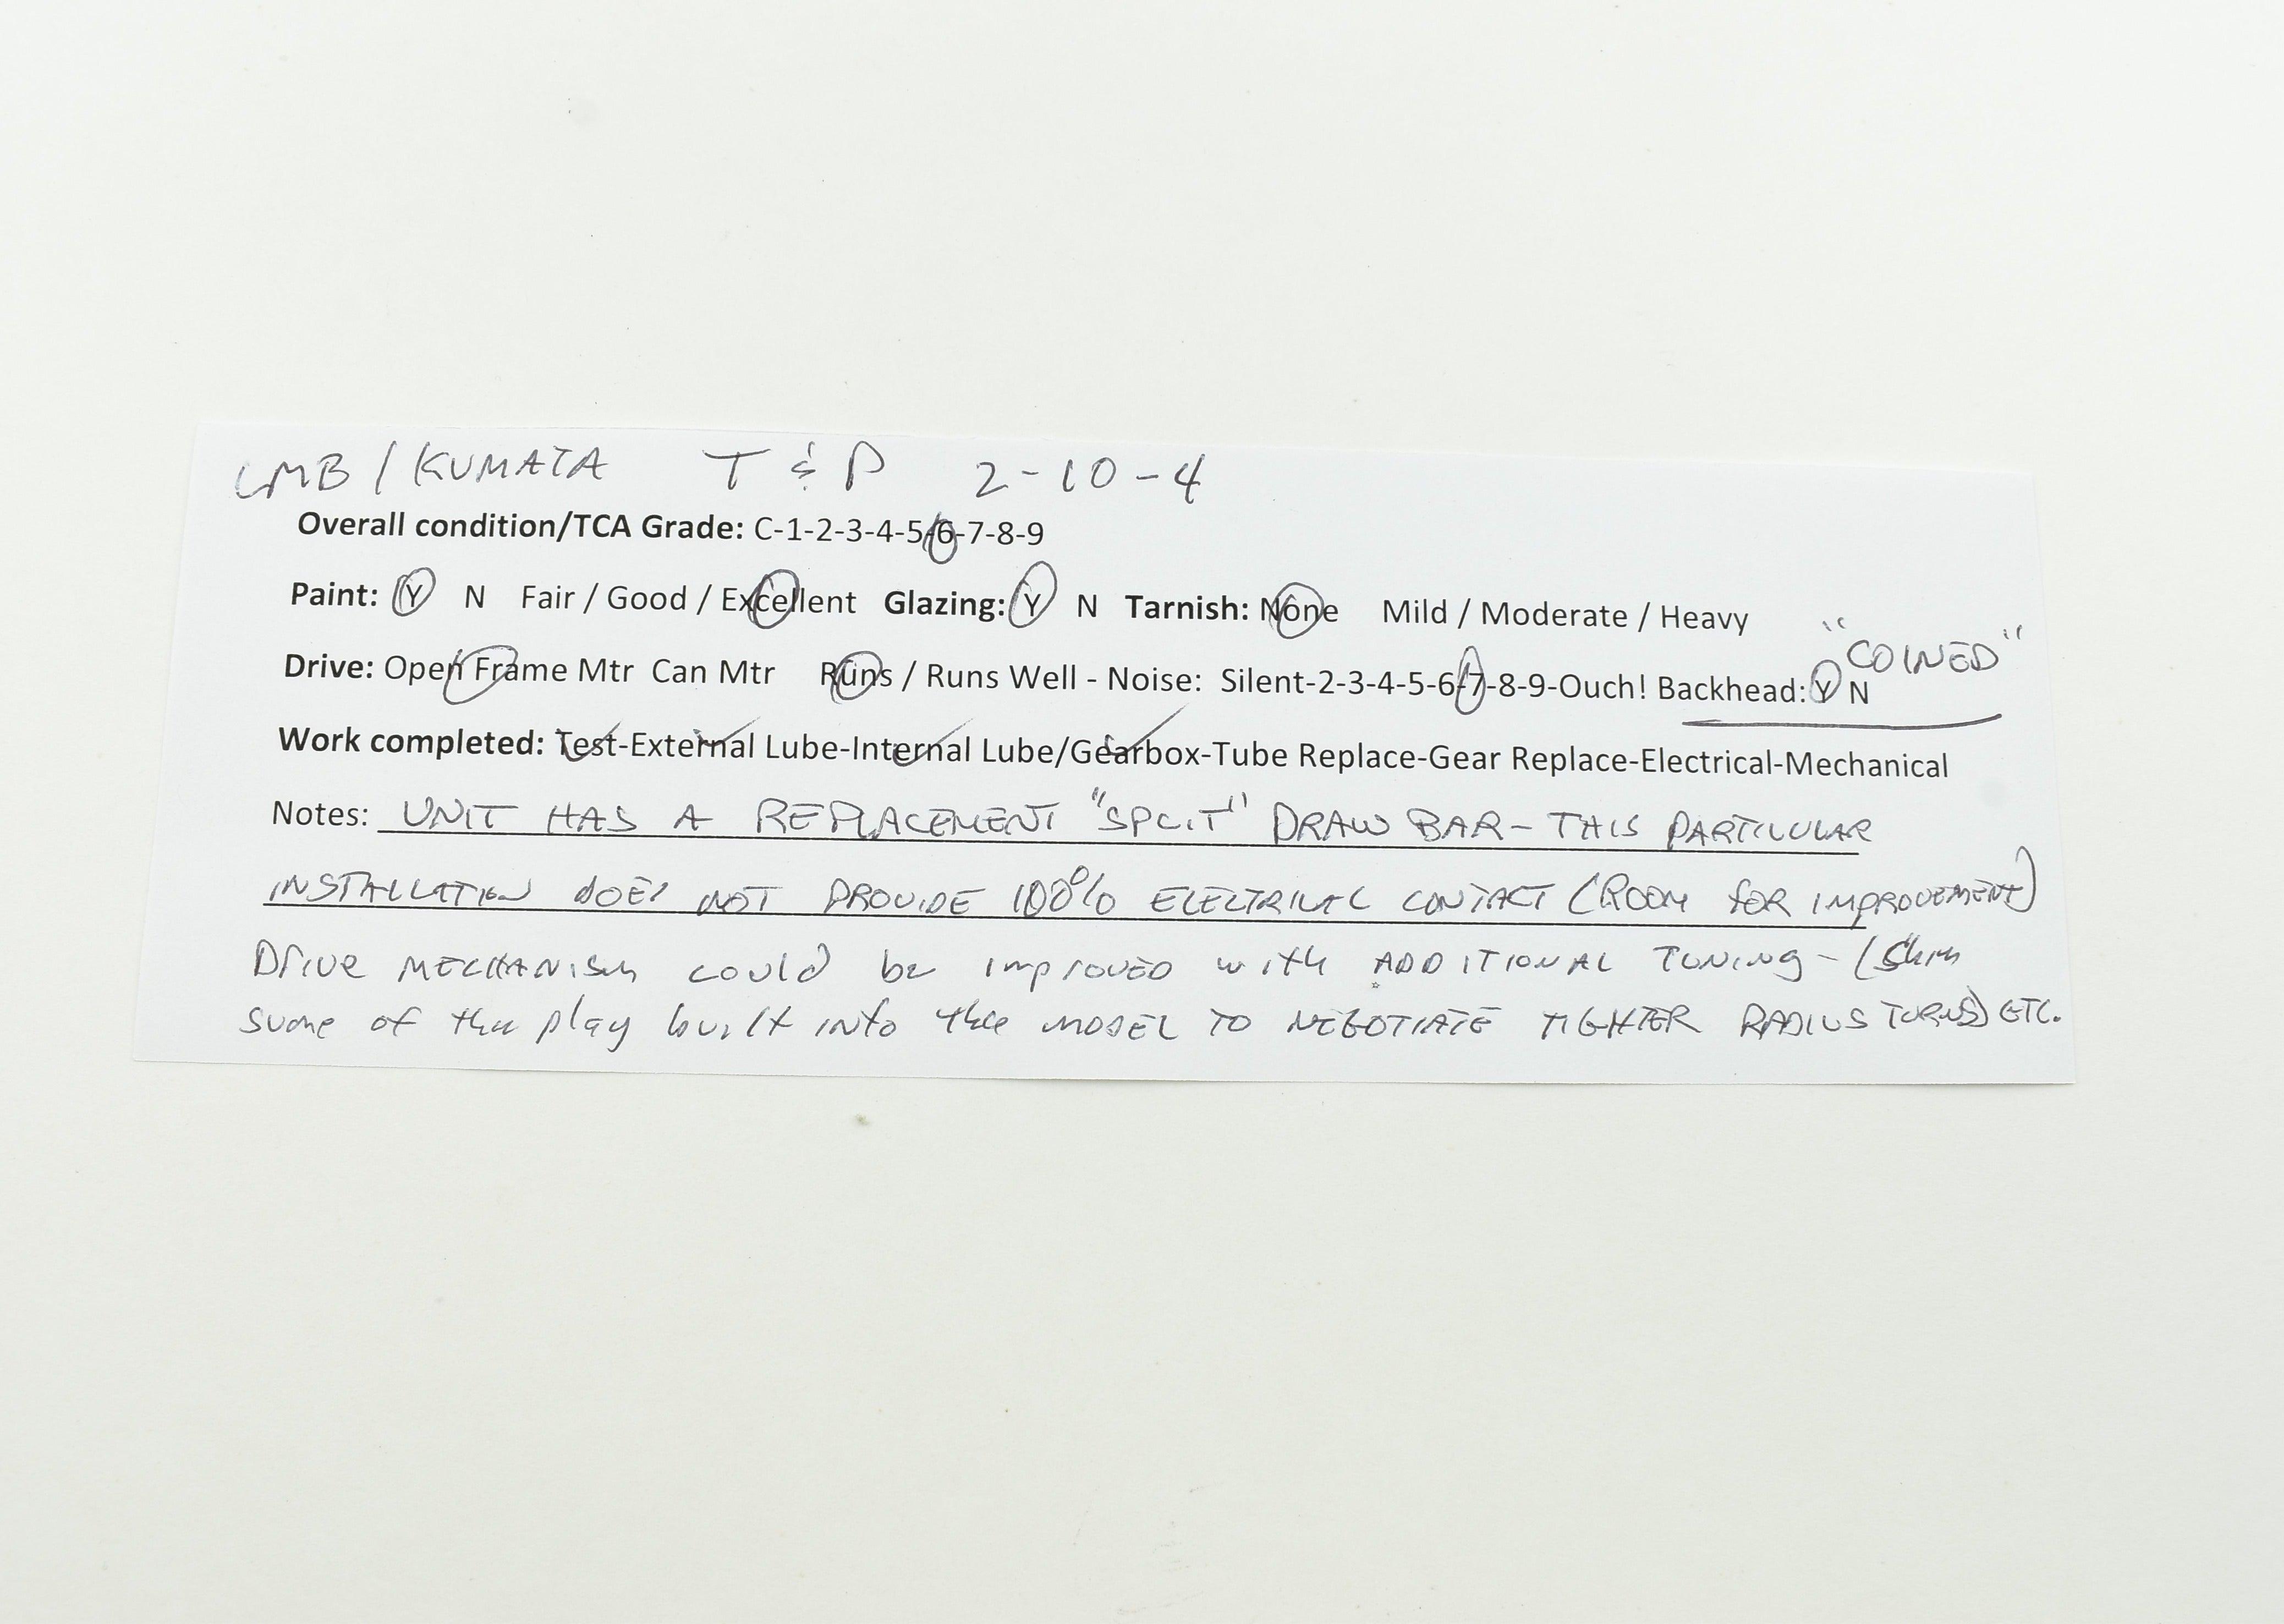 LMB / KUMATA T & P 2-10-4
Overall condition/TCA Grade: C-1-2-3-4-5-6-7-8-9
Paint: Y N Fair / Good / Excellent Glazing: Y N Tarnish: None Mild / Moderate / Heavy
"COINED"
Drive: Open Frame Mtr Can Mtr Runs / Runs Well - Noise: Silent-2-3-4-5-6-7-8-9-Ouch! Backhead: Y N
Work completed: Test-External Lube-Internal Lube/Gearbox-Tube Replace-Gear Replace-Electrical-Mechanical
Notes: UNIT HAS A REPLACEMENT "SPLIT" DRAW BAR - THIS PARTICULAR
INSTALLATION DOES NOT PROVIDE 100% ELECTRICAL CONTACT (ROOM FOR IMPROVEMENT)
Drive MECHANISM could be improved with ADDITIONAL TUNING - (Shim
some of the play built into the MODEL TO NEGOTIATE TIGHTER RADIUS TURNS) ETC.